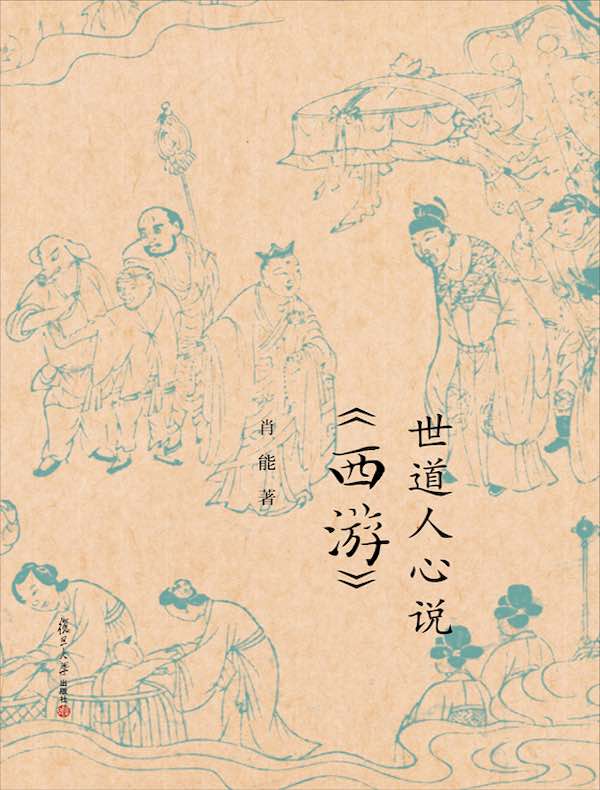 世道人心说
《西游》
肖能著
復旦大學
出版社